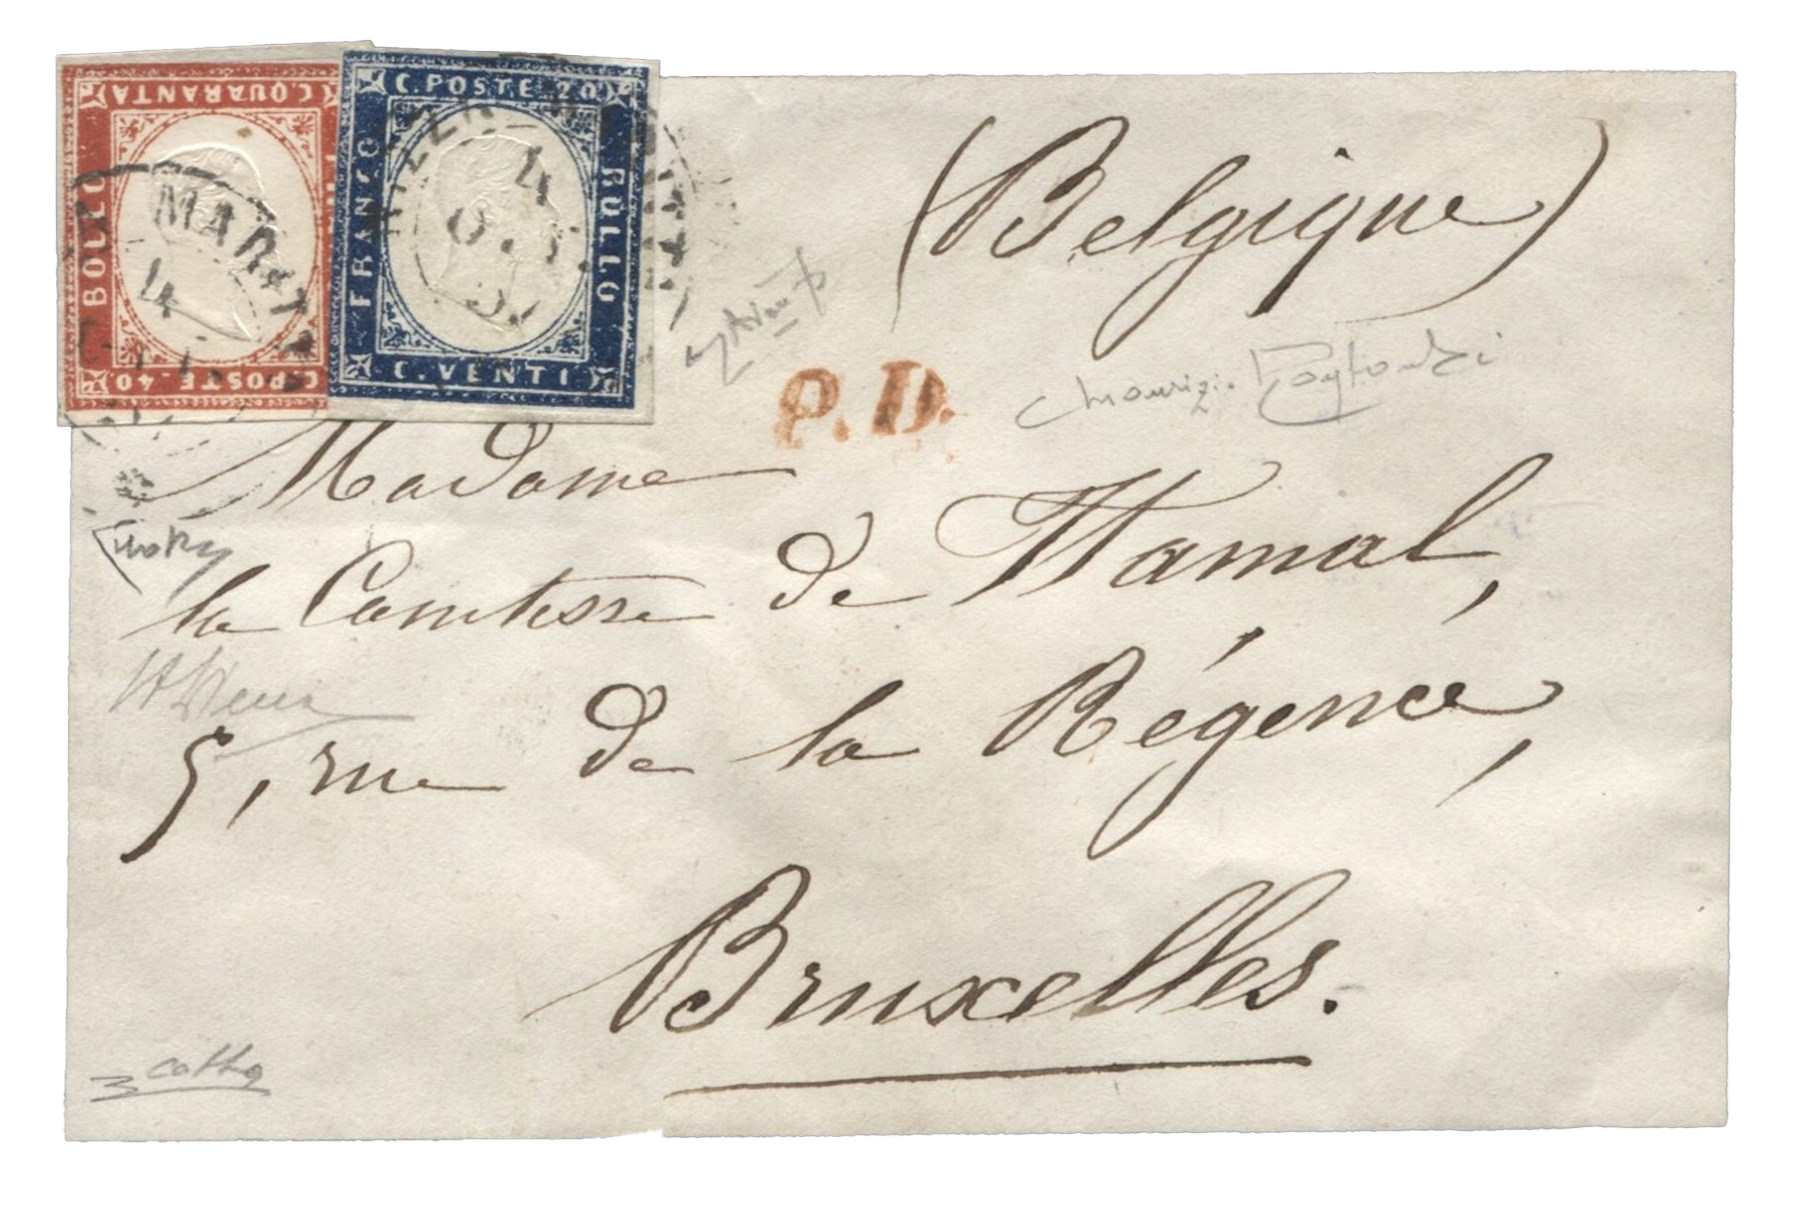 C. QUARANTA
BOLLO
C. POSTE. 40
C. POSTE 20
FRANCO
BOLLO
C. VENTI
MARIT
4
4
(Belgique)
P.D.
Madame
la Comtesse de Hamal,
5, rue de la Régence,
Bruxelles.